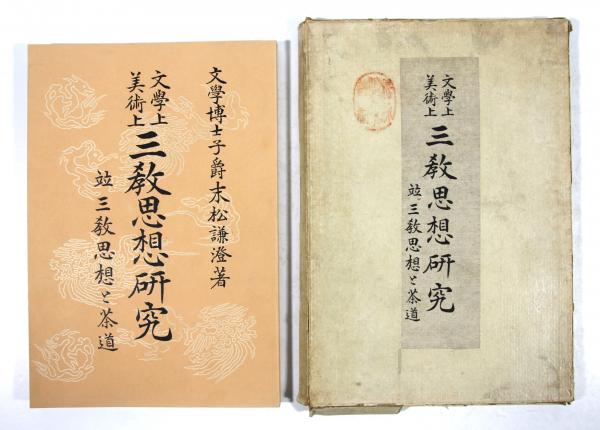 文學博士子爵末松謙澄著
文學上
美術上
三敎思想研究
竝三敎思想と茶道
文學上
美術上
三敎思想研究
竝三敎思想と茶道